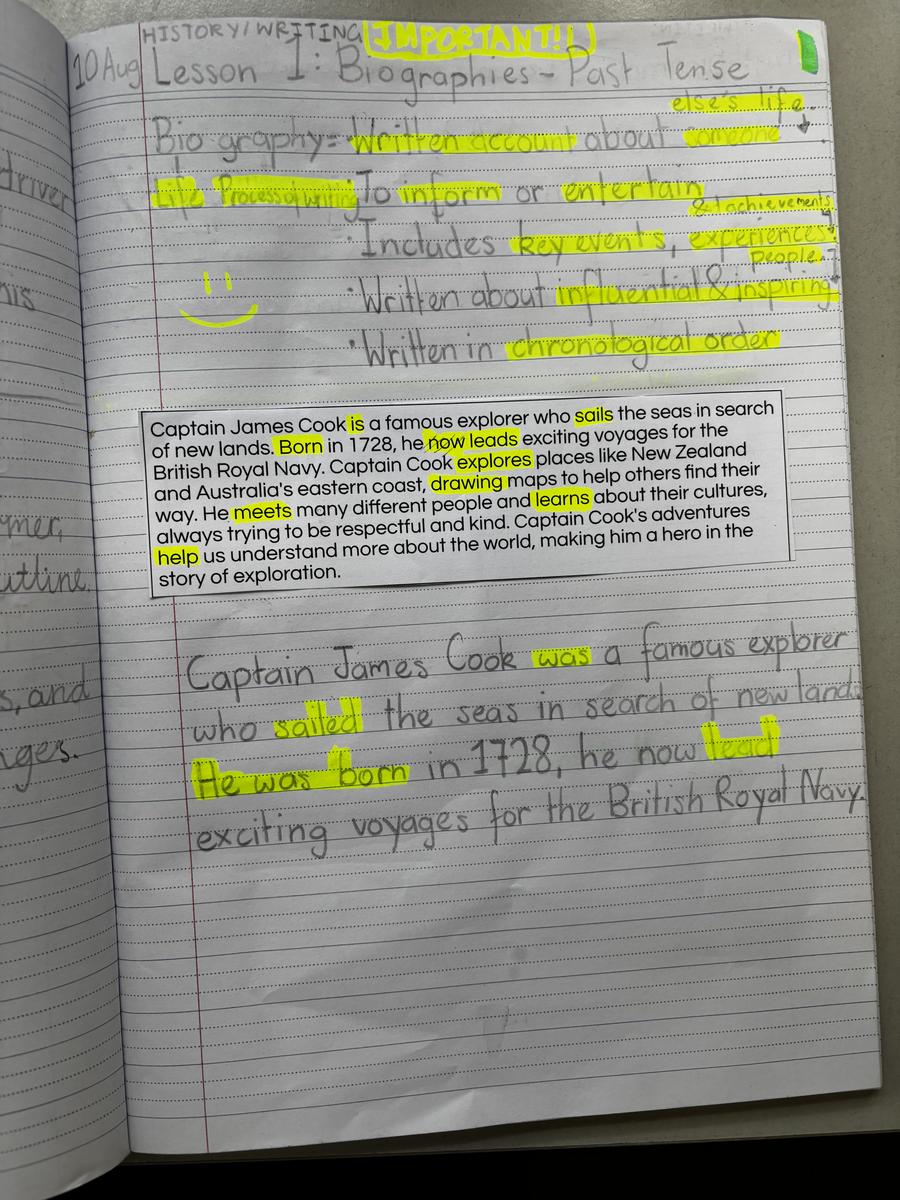 HISTORY/WRITING IMPORTANT!!
10 Aug Lesson 1: Biographies - Past Tense
else's life
Biography= Written account about someone
Life Process of writing To inform or entertain
& achievements
Includes key events, experiences
people
Written about influential & inspiring
Written in chronological order
Captain James Cook is a famous explorer who sails the seas in search
of new lands. Born in 1728, he now leads exciting voyages for the
British Royal Navy. Captain Cook explores places like New Zealand
and Australia's eastern coast, drawing maps to help others find their
way. He meets many different people and learns about their cultures,
always trying to be respectful and kind. Captain Cook's adventures
help us understand more about the world, making him a hero in the
story of exploration.
Captain James Cook was a famous explorer
who sailed the seas in search of new lands.
He was born in 1728, he now lead
exciting voyages for the British Royal Navy.
driver
his
s, and